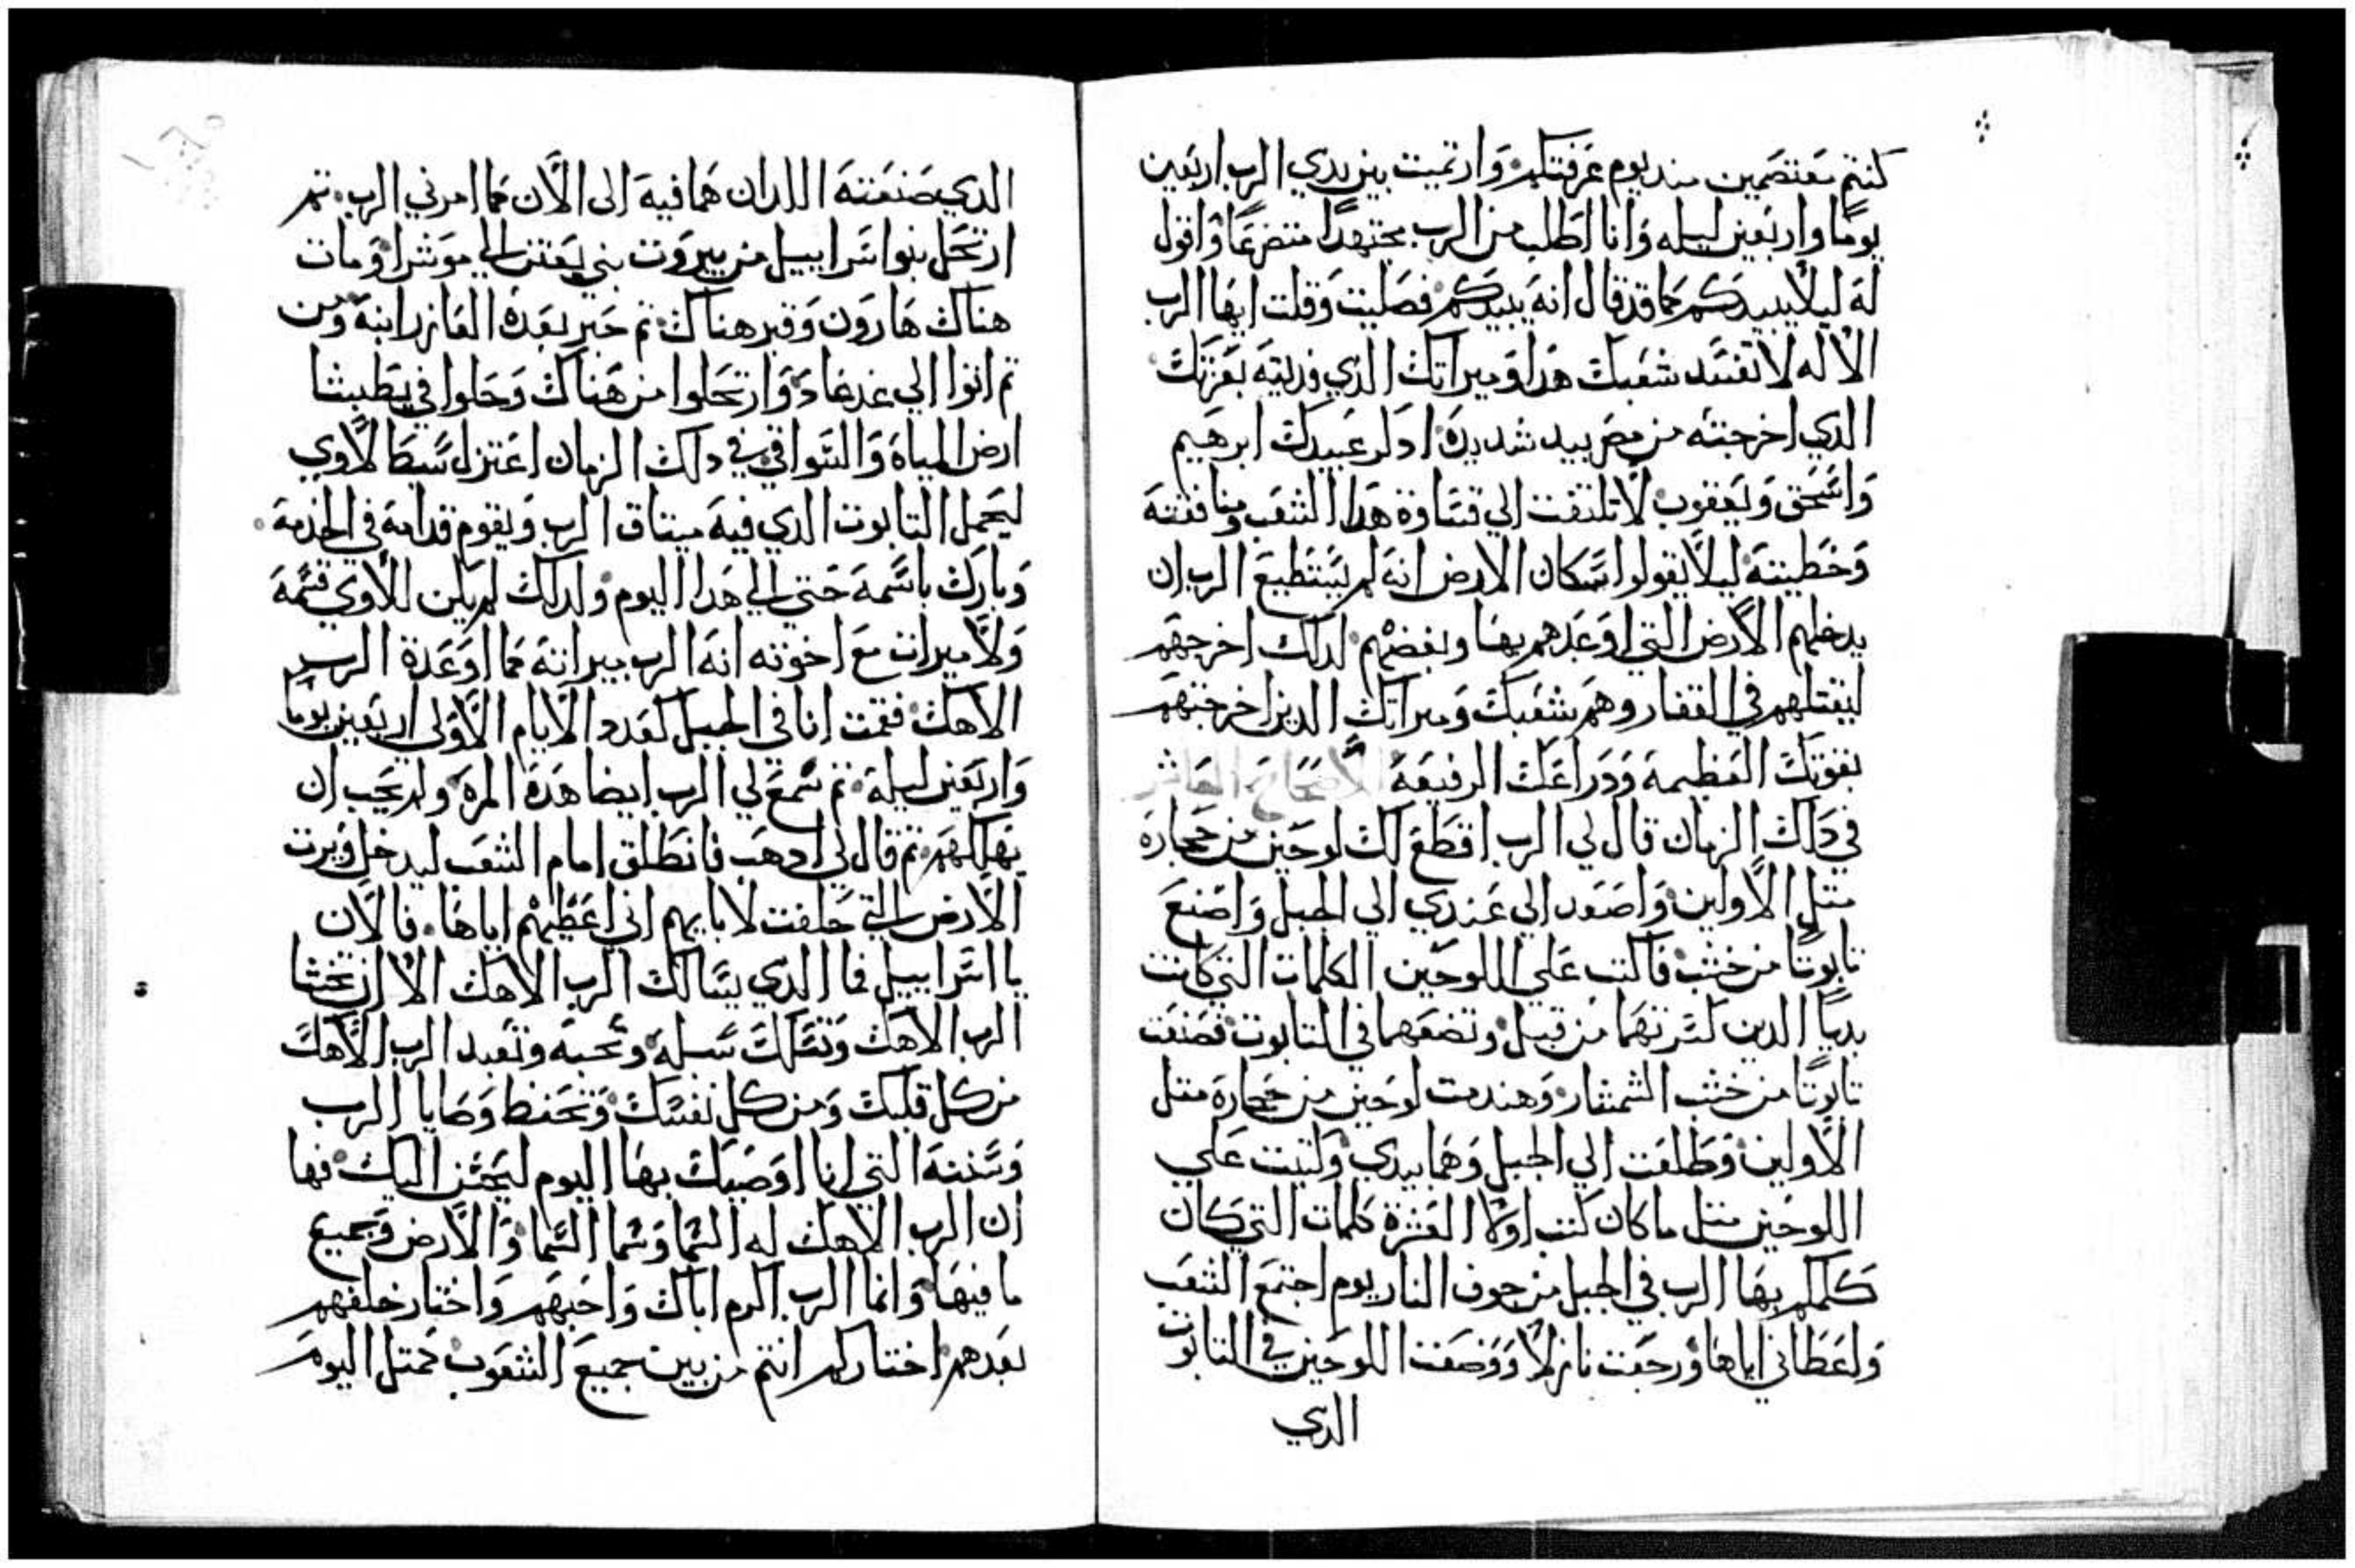 كنتم معتصمين منديوم عرفتكم وارتميت بين يدي الرب اربعين
يومًا واربعين ليله وانا اطلب من الرب مجتهدًا متضرعًا واقول
له ليلا يبيدكم كما قد قال انه يبيدكم فصليت وقلت ايها الرب
الاله لا تفسد شعبك هدا وميراتك الدي فديته بعزتك
الدي اخرجته من مصر بيد شديدة ادكر عبيدك ابرهيم
واسحق ويعقوب لا تلتفت الي قساوة هدا الشعب ومنافقته
وخطيته ليلا يقولوا سكان الارض انه لم يستطيع الرب ان
يدخلهم الارض التي اوعدهم بها وبغضهم لدلك اخرجهم
ليقتلهم في القفار وهم شعبك وميراتك الدين اخرجتهم
بقوتك العظيمة ودراعك الرفيعة الاصحاح العاشر
في دلك الزمان قال لي الرب اقطع لك لوحين من حجارة
متل الاولين واصعد الي عندي الي الجبل واصنع
تابوتًا من خشب فاكتب علي اللوحين الكلمات التي كانت
بديًا الدين كسرتهما من قبل وتضعهما في التابوت فصنعت
تابوتًا من خشب الشمشار وهندمت لوحين من حجارة متل
الاولين وطلعت الي الجبل وهما بيدي وكتبت علي
اللوحين متل ما كان كتب اولا العشرة كلمات التي كان
كلمكم بها الرب في الجبل من جوف النار يوم اجتمع الشعب
واعطاني اياها ورجعت نازلا ووضعت اللوحين في التابوت
الدي
الدي صنعته اللدان هما فيه الى الان كما امرني الرب تم
ارتحل بنوا اسراييل من بيروت بني يعتن الي موشرا ومات
هناك هارون وقبر هناك تم حبر بعده العازر ابنه ومن
تم اتوا الي غدغاد وارتحلوا من هناك وحلوا في يطبثا
ارض المياه والسواقي في دلك الزمان اعتزل سبط لاوي
ليحمل التابوت الدي فيه ميتاق الرب ويقوم قدامه في الخدمة
وبارك باسمه حتي الي هدا اليوم ولدلك لم يكن للاوي قسمة
ولا ميرات مع اخوته انه الرب ميراته كما اوعدة الرب
الاهك فقمت انا في الجبل كعدد الايام الاولي اربعين يومًا
واربعين ليلة تم سمع لي الرب ايضا هدة المرة ولم يحب ان
يهلكهم تم قال لي ادهب فانطلق امام الشعب ليدخل ويرت
الارض التي حلفت لابايهم اني اعطيهم اياها فالان
يا اسراييل فما الدي يسالك الرب الاهك الا ان تخشا
الرب الاهك وتسلك سبله وتحبه وتعبد الرب الاهك
من كل قلبك ومن كل نفسك وتحفظ وصايا الرب
وسننه التي انا اوصيك بها اليوم ليحسن اليك فها
ان الرب الاهك له السما وسما السما والارض وجميع
ما فيها وانما الرب الزم اباك واحبهم واختار خلفهم
بعدهم اختاركم انتم من بين جميع الشعوب كمتل اليوم